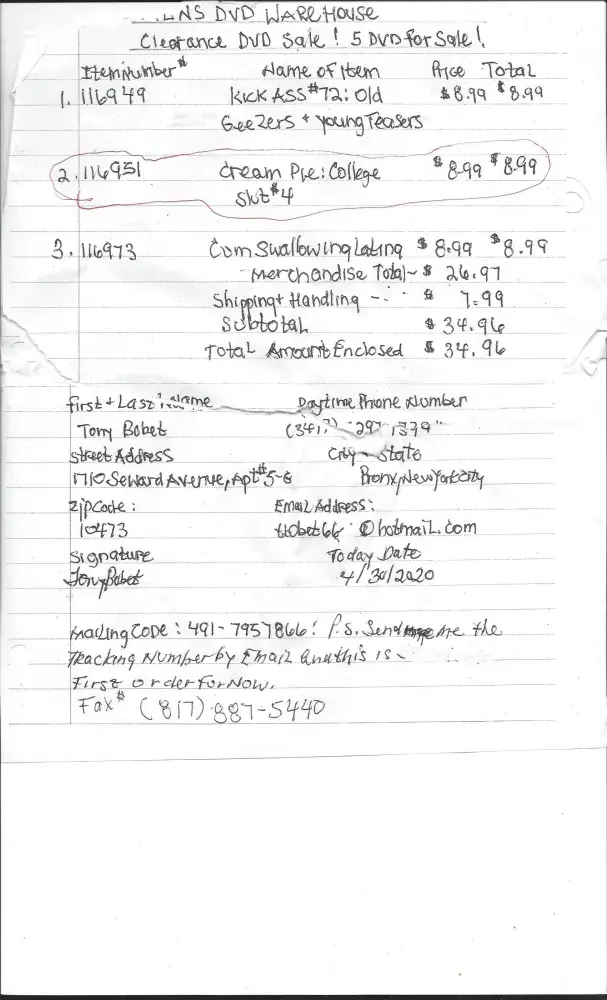 LNS DVD WAREHOUSE
Clearance DVD Sale! 5 DVD for Sale!
Item Number# Name of Item Price Total
1. 116949 KICK ASS #72: Old $8.99 $8.99
GeeZers + young Teasers
2. 116951 Cream Pie: College $8.99 $8.99
Slut #4
3. 116973 Cum Swallowing Latinq $8.99 $8.99
Merchandise Total~ $ 26.97
Shipping + Handling -- $ 7.99
Subtotal $ 34.96
Total Amount Enclosed $ 34.96
First + Last Name Daytime Phone Number
Tony Bobet 1379
Street Address City ~ State
1710 Seward Avenue, Apt #5-G Bronx, New York City
Zip Code: Email Address:
10473 @hotmail.com
Signature Today Date
Tony Bobet 4/30/2020
Mailing CODE: 491-7957866! P.S. Send me the
Tracking Number by Email and this is
First order For Now.
Fax# (817) 887-5440